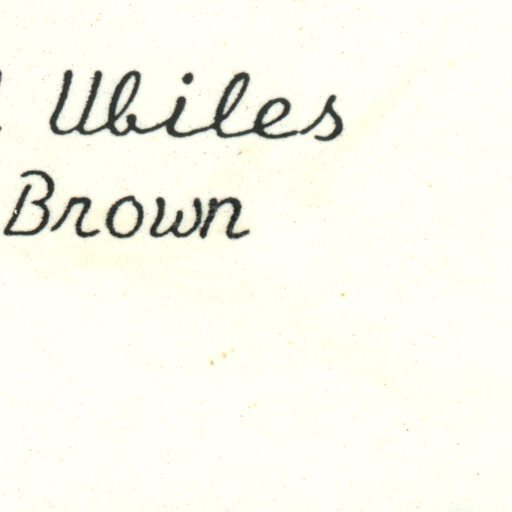 Ubiles
Brown